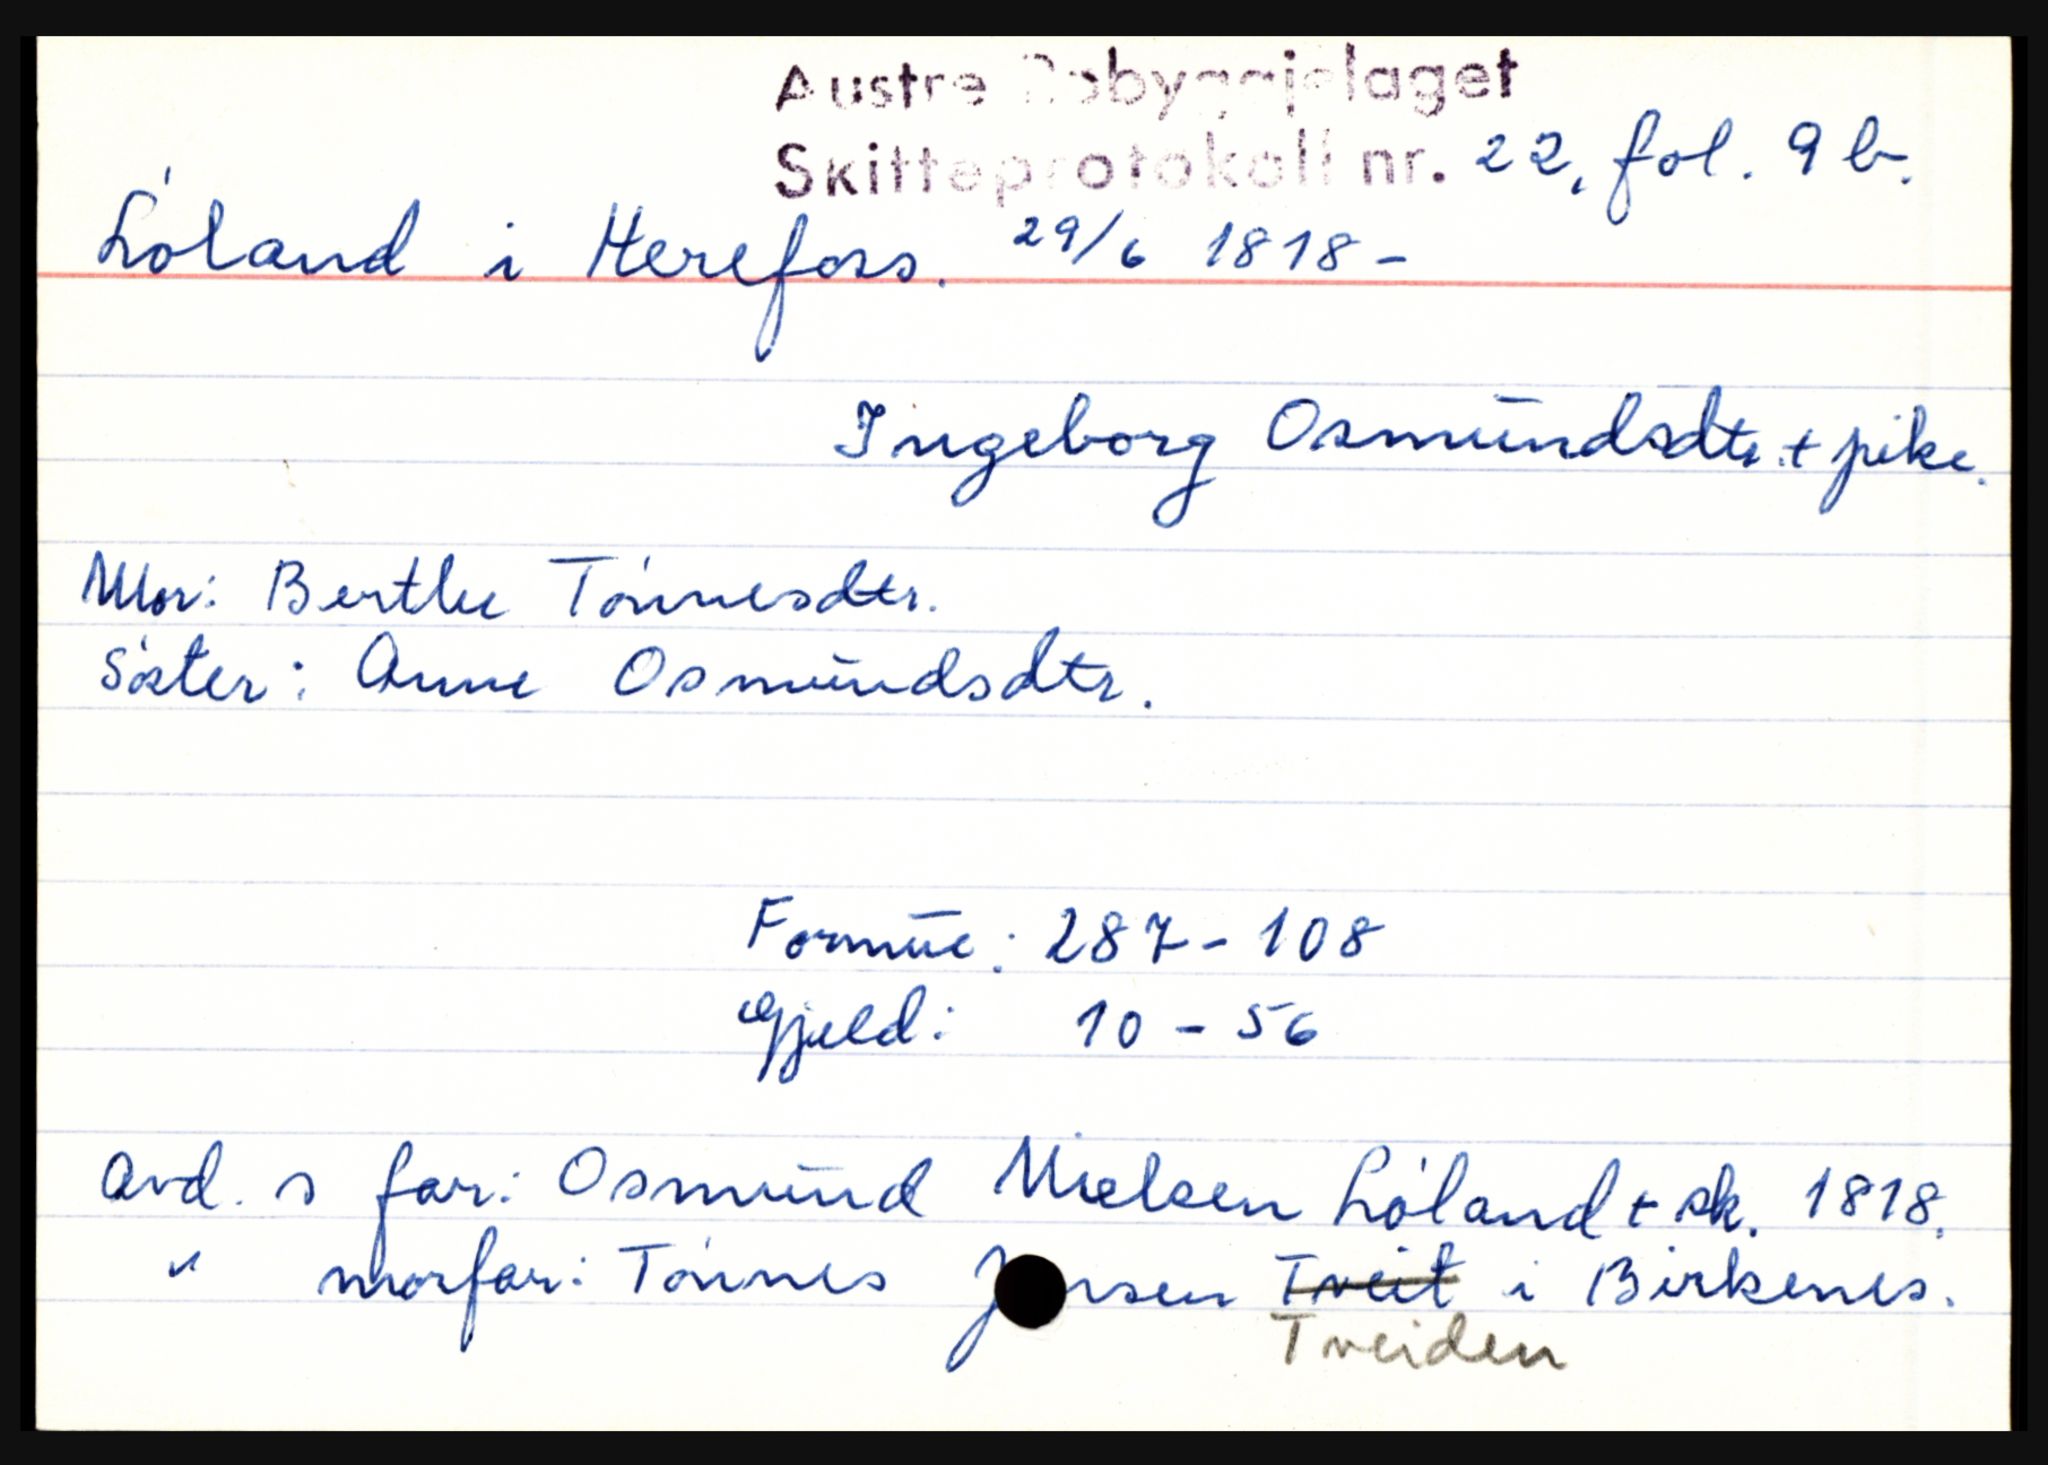 Austre Robyggjelaget
Skifteprotokoll nr. 22, fol. 9 b.
Lóland i Herefoss. 29/6 1818-
Ingeborg Osmundsdtr. + pike.
Mor: Berthe Tónnesdtr.
Sóster: Anne Osmundsdtr.
Formue: 287-108
Gjeld: 10-56
Avd. s far: Osmund Nielsen Lóland + sk. 1818.
" morfar: Tónnes Tveit i Birkenes.
Tveiden